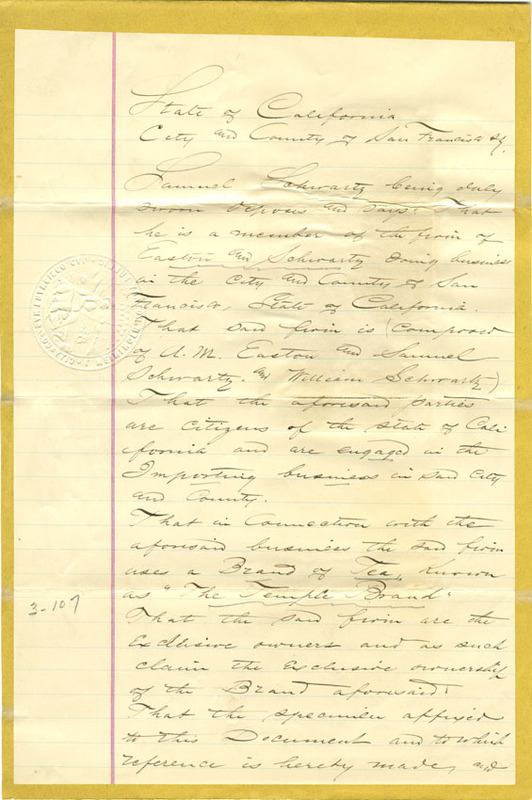 State of California
City and County of San Francisco
Samuel Schwartz being duly
sworn deposes and says: That
he is a member of the firm of
Easton and Schwartz doing business
in the City and County of San
Francisco, State of California.
That said firm is (Composed
of A. M. Easton and Samuel
Schwartz. and William Schwartz)
That the aforesaid parties
are citizens of the State of Cali
fornia and are engaged in the
Importing business in said City
and County.
That in Connection with the
aforesaid business the said firm
uses a Brand of Tea, Known
as "The Temple Brand"
3-107
That the said firm are the
Exclusive owners and as such
claim the exclusive ownership
of the Brand aforesaid:
That the specimen affixed
to this Document and to which
reference is hereby made, and